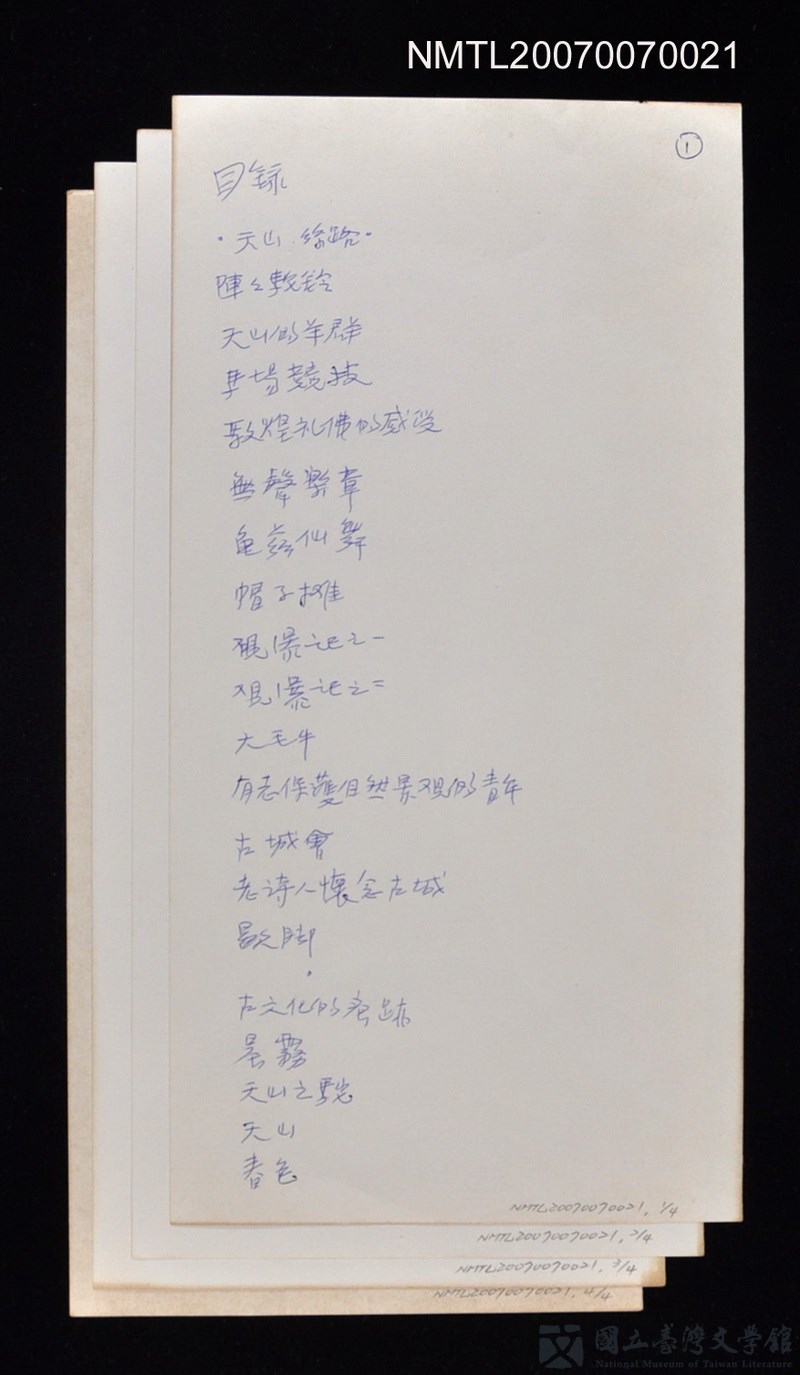 NMTL20070070021
1
目錄
·天山·絲路·
陣々駝鈴
天山的羊群
馬場競技
敦煌礼佛的感受
無聲樂章
龟茲仙舞
帽子攤
觀瀑記之一
观瀑記之二
大毛牛
有志保護自然景观的青年
古城會
老诗人懷念古城
歇脚
古文化的痕跡
晨霧
天山之駝
天山
春色
NMTL20070070021, 1/4
NMTL20070070021, 2/4
NMTL20070070021, 3/4
NMTL20070070021, 4/4
國立臺灣文學館
National Museum of Taiwan Literature